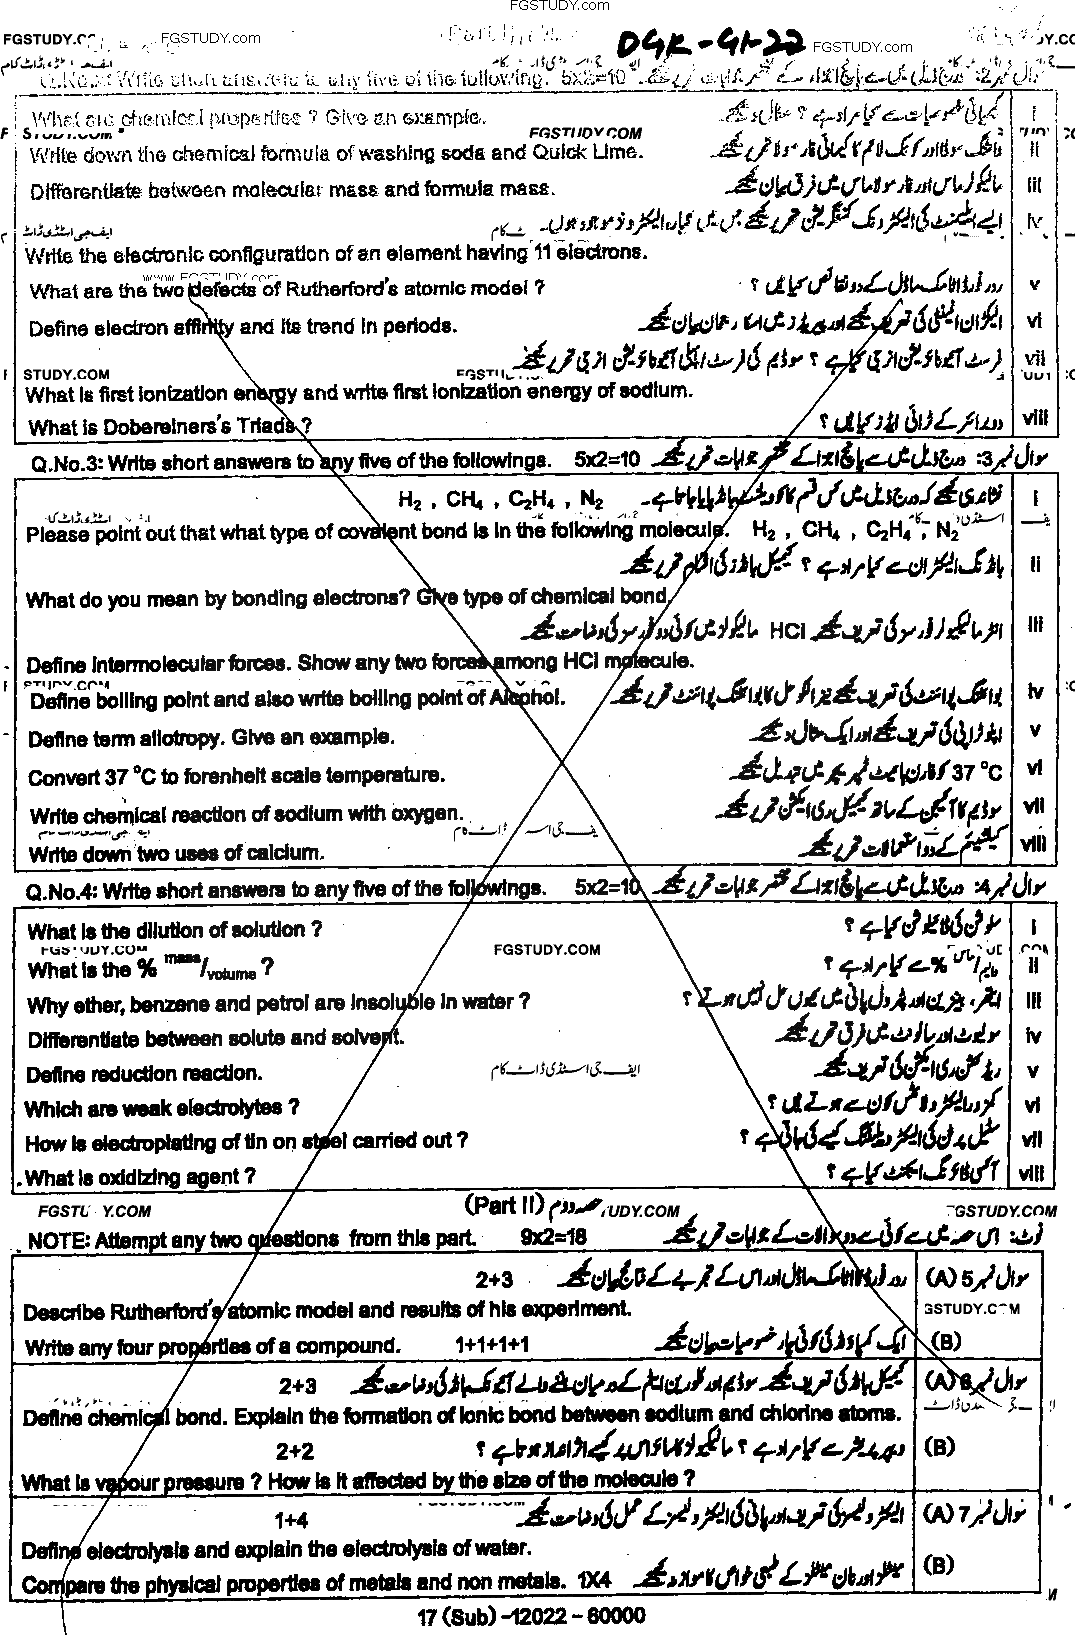 FGSTUDY.com
FGSTUDY.com
DGK-G1-22
FGSTUDY.com
Q.No.2: Write short answers to any five of the following. 5x2=10 سوال نمبر 2: درج ذیل میں سے پانچ اجزاء کے مختصر جوابات تحریر کیجئے۔
What are chemical properties ? Give an example. کیمیائی خصوصیات سے کیا مراد ہے ؟ مثال دیجئے i
FGSTUDY.COM
Write down the chemical formula of washing soda and Quick Lime. واشنگ سوڈا اور کوئک لائم کا کیمیائی فارمولا تحریر کیجئے ii
Differentiate between molecular mass and formula mass. مالیکیولر ماس اور فارمولا ماس میں فرق بیان کیجئے iii
ایسے ایلیمنٹ کی الیکٹرونک کنفگریشن تحریر کیجئے جس میں گیارہ الیکٹرونز موجود ہوں۔ iv
Write the electronic configuration of an element having 11 electrons.
What are the two defects of Rutherford's atomic model ? ردرفورڈ اٹامک ماڈل کے دو نقائص کیا ہیں ؟ v
Define electron affinity and its trend in periods. الیکٹران افینٹی کی تعریف کیجئے اور پیریڈز میں اسکا رجحان بیان کیجئے vi
فرسٹ آئیونائزیشن انرجی کیا ہے ؟ سوڈیم کی فرسٹ آئیونائزیشن انرجی تحریر کیجئے vii
What is first ionization energy and write first ionization energy of sodium.
What is Dobereiners's Triads ? ڈوبرائنر کے ٹرائی ایڈز کیا ہیں ؟ viii
Q.No.3: Write short answers to any five of the followings. 5x2=10 سوال نمبر 3: درج ذیل میں سے پانچ اجزا کے مختصر جوابات تحریر کیجئے
H₂ , CH₄ , C₂H₄ , N₂ نشاندہی کیجئے کہ درج ذیل میں کس قسم کا کوویلنٹ بانڈ پایا جاتا ہے۔ i
Please point out that what type of covalent bond is in the following molecule. H₂ , CH₄ , C₂H₄ , N₂
بانڈنگ الیکٹران سے کیا مراد ہے ؟ کیمیکل بانڈز کی اقسام تحریر کیجئے ii
What do you mean by bonding electrons? Give type of chemical bond.
انٹر مالیکیولر فورسز کی تعریف کیجئے HCl مالیکیولز میں کوئی دو فورسز کی وضاحت کیجئے iii
Define intermolecular forces. Show any two forces among HCl molecule.
Define boiling point and also write boiling point of Alcohol. بوائلنگ پوائنٹ کی تعریف کیجئے نیز الکوحل کا بوائلنگ پوائنٹ تحریر کیجئے iv
Define term allotropy. Give an example. ایلوٹراپی کی تعریف کیجئے اور ایک مثال دیجئے v
Convert 37 °C to forenheit scale temperature. 37 °C کو فارن ہائیٹ ٹمپریچر میں تبدیل کیجئے vi
Write chemical reaction of sodium with oxygen. سوڈیم کا آکسیجن کے ساتھ کیمیکل ری ایکشن تحریر کیجئے vii
Write down two uses of calcium. کیلشیم کے دو استعمالات تحریر کیجئے viii
Q.No.4: Write short answers to any five of the followings. 5x2=10 سوال نمبر 4: درج ذیل میں سے پانچ اجزا کے مختصر جوابات تحریر کیجئے
What is the dilution of solution ? سلوشن کی ڈائلیوشن کیا ہے ؟ i
FGSTUDY.COM FGSTUDY.COM
What is the % mass/volume ? %ماس/والیم سے کیا مراد ہے ؟ ii
Why ether, benzene and petrol are insoluble in water ? ایتھر، بینزین اور پٹرول پانی میں کیوں حل نہیں ہوتے ؟ iii
Differentiate between solute and solvent. سولیوٹ اور سالونٹ میں فرق تحریر کیجئے iv
Define reduction reaction. ایف جی اسٹڈی ڈاٹ کام ریڈکشن ری ایکشن کی تعریف کیجئے v
Which are weak electrolytes ? کمزور الیکٹرولائٹس کون سے ہوتے ہیں ؟ vi
How is electroplating of tin on steel carried out ? سٹیل پر ٹن کی الیکٹروپلیٹنگ کیسے کی جاتی ہے ؟ vii
What is oxidizing agent ? آکسیڈائزنگ ایجنٹ کیا ہے ؟ viii
FGSTUDY.COM (Part II) حصہ دوم FGSTUDY.COM
NOTE: Attempt any two questions from this part. 9x2=18 نوٹ: اس حصہ میں سے کوئی سے دو سوالات کے جوابات تحریر کیجئے
2+3 ردرفورڈ کا اٹامک ماڈل اور اس کے تجربے کے نتائج بیان کیجئے (A) سوال نمبر 5
Describe Rutherford's atomic model and results of his experiment.
Write any four properties of a compound. 1+1+1+1 ایک کمپاؤنڈ کی کوئی چار خصوصیات بیان کیجئے (B)
2+3 کیمیکل بانڈ کی تعریف کیجئے سوڈیم اور کلورین ایٹم کے درمیان بننے والے آئیونک بانڈ کی وضاحت کیجئے (A) سوال نمبر 6
Define chemical bond. Explain the formation of ionic bond between sodium and chlorine atoms.
2+2 ویپر پریشر سے کیا مراد ہے ؟ مالیکیولز کا سائز اس پر کیسے اثر انداز ہوتا ہے ؟ (B)
What is vapour pressure ? How is it affected by the size of the molecule ?
1+4 الیکٹرولیسز کی تعریف اور پانی کی الیکٹرولیسز کے عمل کی وضاحت کیجئے (A) سوال نمبر 7
Define electrolysis and explain the electrolysis of water.
Compare the physical properties of metals and non metals. 1X4 میٹلز اور نان میٹلز کے طبعی خواص کا موازنہ کیجئے (B)
17 (Sub) -12022 - 60000